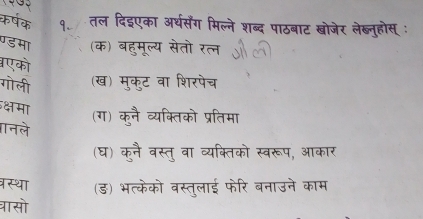 कर्षक
ण्डमा
एको
गोली
क्षमा
ानले
स्था
ासो
१. तल दिइएका अर्थसँग मिल्ने शब्द पाठबाट खोजेर लेख्नुहोस् :
(क) बहुमूल्य सेतो रत्न
(ख) मुकुट वा शिरपेच
(ग) कुनै व्यक्तिको प्रतिमा
(घ) कुनै वस्तु वा व्यक्तिको स्वरूप, आकार
(ङ) भत्केको वस्तुलाई फेरि बनाउने काम